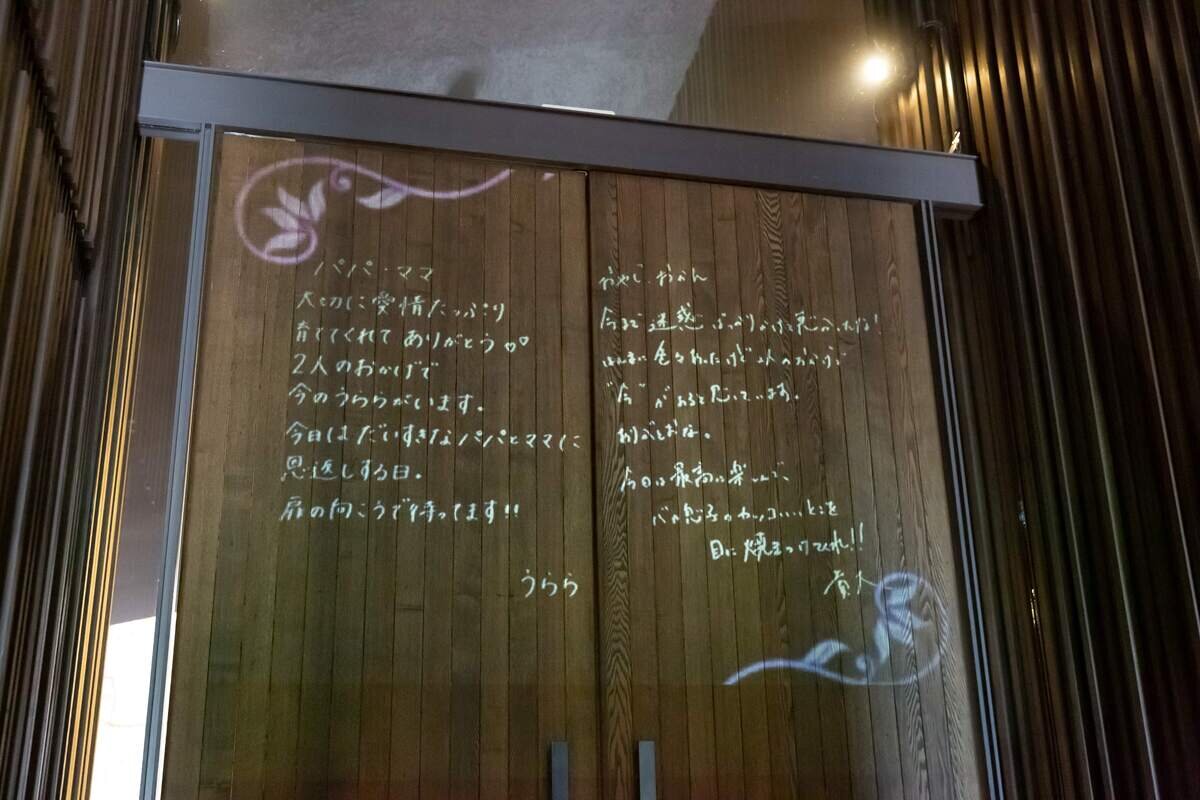 パパ・ママ
大切に愛情たっぷり
育ててくれて ありがとう♡♡
2人のおかげで
今のうららがいます。
今日は だいすきな パパとママに
恩返しする日。
扉の向こうで待ってます!!
うらら
おやじ、おかん
今まで 迷惑 ばっかりかけて悪かったな!
ほんまに 色々あったけど 2人のおかげで
"今" があると思っています。
ありがとおな。
今日は 最高に楽しんで、
バカ息子のカッコいいとこを
目に焼きつけてくれ!!
貴大